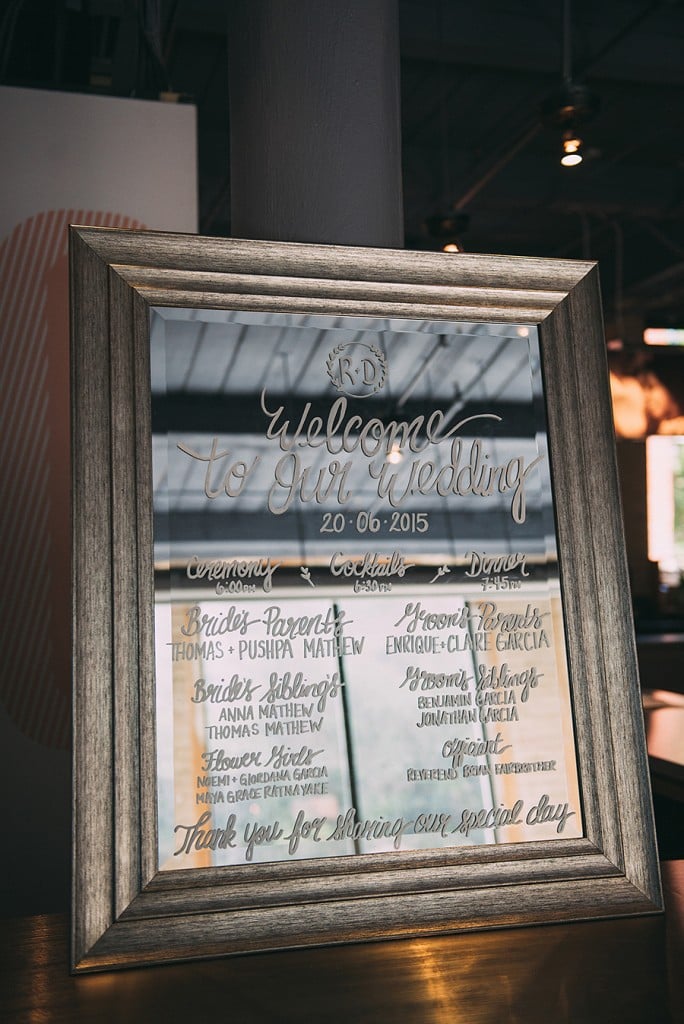 R+D
Welcome
to Our Wedding
20·06·2015
Ceremony Cocktails Dinner
6:00PM 6:30PM 7:45PM
Bride's Parents
THOMAS + PUSHPA MATHEW
Groom's Parents
ENRIQUE + CLARE GARCIA
Bride's Siblings
ANNA MATHEW
THOMAS MATHEW
Groom's Siblings
BENJAMIN GARCIA
JONATHAN GARCIA
Flower Girls
NOEMI + GIORDANA GARCIA
MAYA GRACE RATNAYAKE
Officiant
REVEREND BRIAN FAIRBROTHER
Thank you for sharing our special day